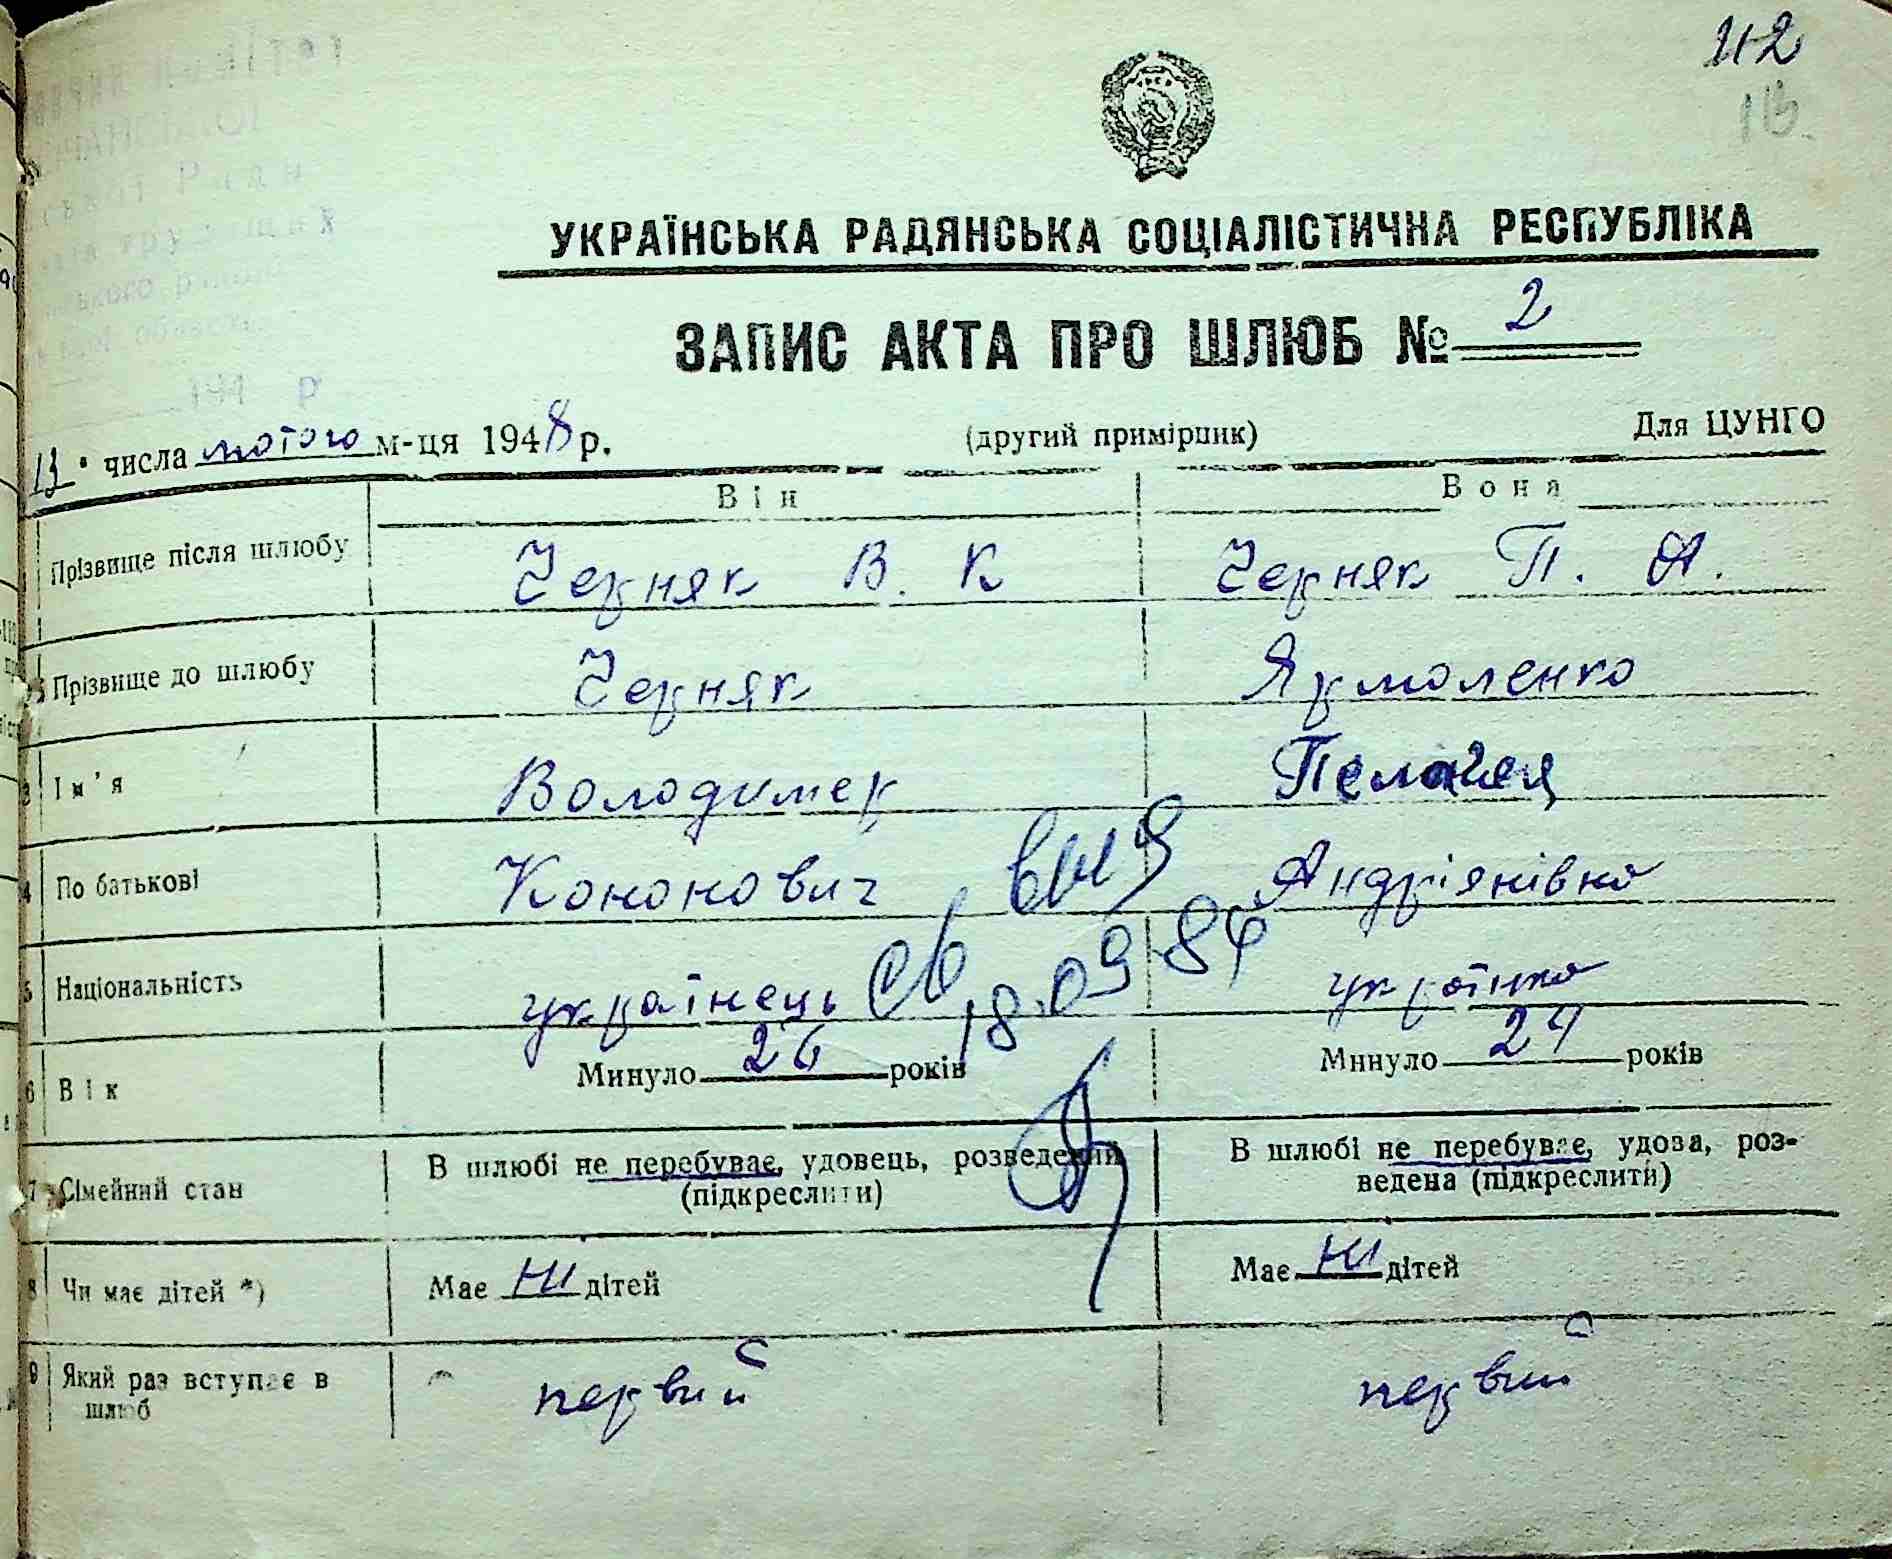 42
УКРАЇНСЬКА РАДЯНСЬКА СОЦІАЛІСТИЧНА РЕСПУБЛІКА
ЗАПИС АКТА ПРО ШЛЮБ № 2
13 числа лютого м-ця 1948 р. (другий примірник) Для ЦУНГО
Він Вона
Прізвище після шлюбу Черняк В. К Черняк П. А.
Прізвище до шлюбу Черняк Ярмоленко
3 Ім'я Володимер Пелагея
4 По батькові Кононович Андріянівна
5 Національність українець українка
св 18.09.84
6 Вік Минуло 26 років Минуло 24 років
7 Сімейний стан В шлюбі не перебуває, удовець, розведений В шлюбі не перебуває, удова, роз-
(підкреслити) ведена (підкреслити)
8 Чи має дітей *) Має ні дітей Має ні дітей
9 Який раз вступає в первий первий
шлюб